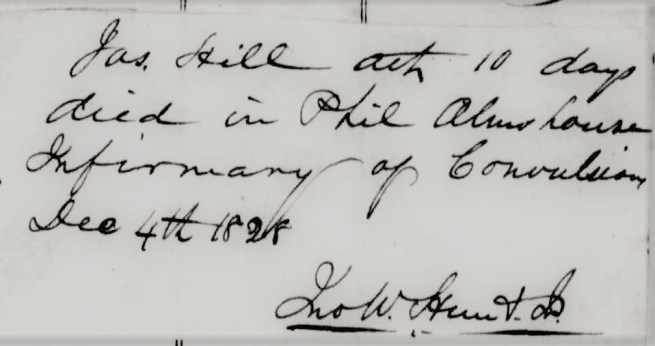 Jas. Hill aet. 10 days
died in Phil Almshouse
Infirmary of Convulsions
Dec 4th 1828
Jno W. Hunt. Jr.